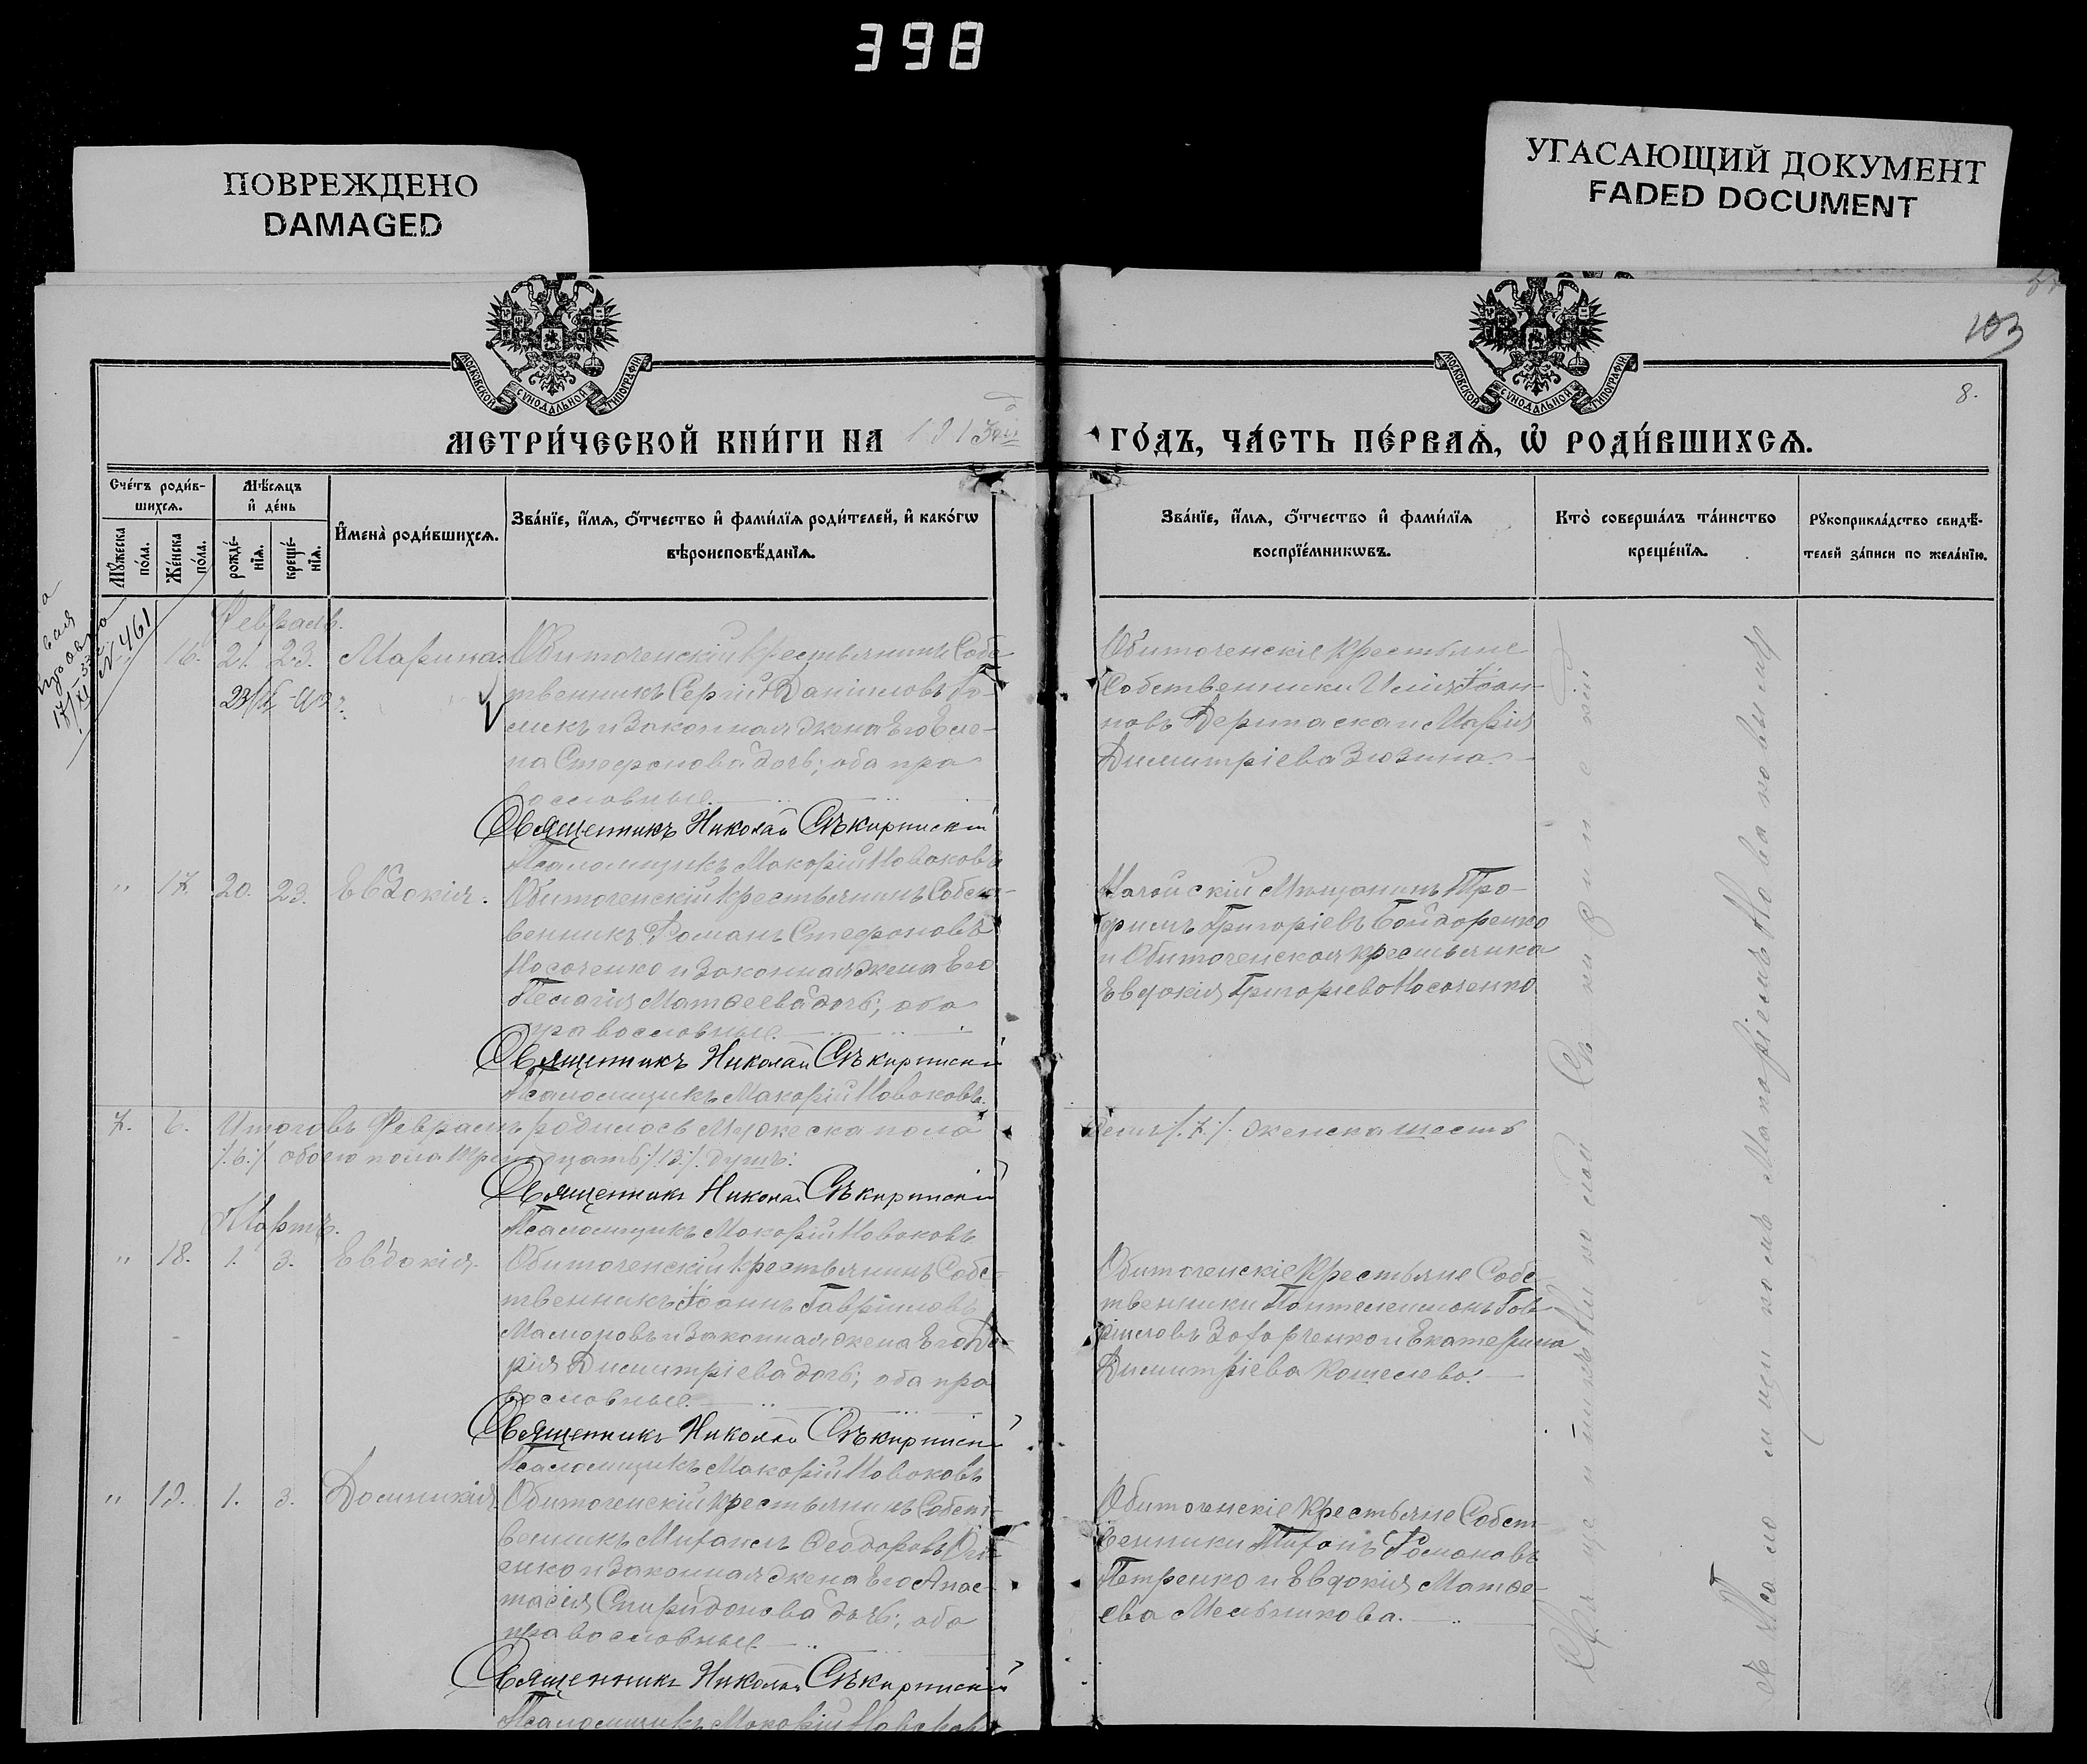 398
ПОВРЕЖДЕНО
DAMAGED
УГАСАЮЩИЙ ДОКУМЕНТ
FADED DOCUMENT
103
8.
МОСКОВСКОЙ СѴНОДАЛЬНОЙ ТИПОГРАФІИ
МОСКОВСКОЙ СѴНОДАЛЬНОЙ ТИПОГРАФІИ
МЕТРИ́ЧЕСКОЙ КНИ́ГИ НА
ГО́ДЪ, ЧА́СТЬ ПЕ́РВАѦ, Ѽ РОДИ́ВШИХСѦ.
Сче́тъ роди́в-
шихсѧ.
Мꙋ́жеска по́ла.
Же́нска по́ла.
Мѣ́сѧцъ
и҆ де́нь
рожде́-
нїѧ.
креще́-
нїѧ.
И҆мена̀ роди́вшихсѧ.
Зва́нїе, и҆́мѧ, ѻ҆́тчество и҆ фами́лїѧ роди́телей, и҆ како́гѡ
вѣроисповѣ́данїѧ.
Зва́нїе, и҆́мѧ, ѻ҆́тчество и҆ фами́лїѧ
воспрїе́мникѡвъ.
Кто̀ соверша́лъ та́инство
креще́нїѧ.
Рꙋкоприкла́дство свидѣ́-
телей за́писи по жела́нїю.
№ 461
Февраль.
16. 21. 23. Марина. Обиточенскій крестьянинъ Собс
твенникъ Сергій Даніиловъ
и законная жена Его Еле-
на Стефанова дочь; оба пра
вославные.
Священникъ Николай Сѣкирпискій
Псаломщикъ Макарій Новаковъ
Обиточенскіе крестьяне
Собственники Илія Іоан-
новъ Дерипаска и Марія
Димитріева Зюзина.
" 17. 20. 23. Евдокія. Обиточенскій крестьянинъ Собст-
венникъ Романъ Стефановъ
Носаченко и законная жена Его
Пелагія Матѳеева дочь; оба
православные.
Священникъ Николай Сѣкирпискій
Псаломщикъ Макарій Новаковъ.
Ногайскій Мѣщанинъ Тро-
фимъ Григоріевъ Бойдаренко
и Обиточенская крестьянка
Евдокія Григорьева Носаченко
7. 6. Итого въ Февралѣ родилось Мужеска пола
семь /.7./. женска шесть
/.6./. обоего пола тринадцать /.13./. душъ.
Священникъ Николай Сѣкирпискій
Псаломщикъ Макарій Новаковъ
Мартъ.
" 18. 1. 3. Евдокія. Обиточенскій крестьянинъ Собс-
твенникъ Іоаннъ Гавріиловъ
и законная жена Его
рія Димитріева дочь; оба пра
вославные.
Священникъ Николай Сѣкирпискій
Псаломщикъ Макарій Новаковъ
Обиточенскіе крестьяне Собс
твенники Пантелеимонъ Гав
ріиловъ Захарченко и Екатерина
Димитріева Кошелева.
" 19. 1. 3. Домникія. Обиточенскій крестьянинъ Собст-
венникъ Михаилъ Ѳеодоровъ
енко и законная жена Его Анас-
тасія Спиридонова дочь; оба
православные.
Священникъ Николай Сѣкирпискій
Псаломщикъ Макарій Новаковъ
Обиточенскіе крестьяне Собст
венники Романовъ
Петренко и Евдокія Матѳе-
ева Мельникова.
Священникъ Николай
Псаломщикомъ Макаріемъ Новаковымъ